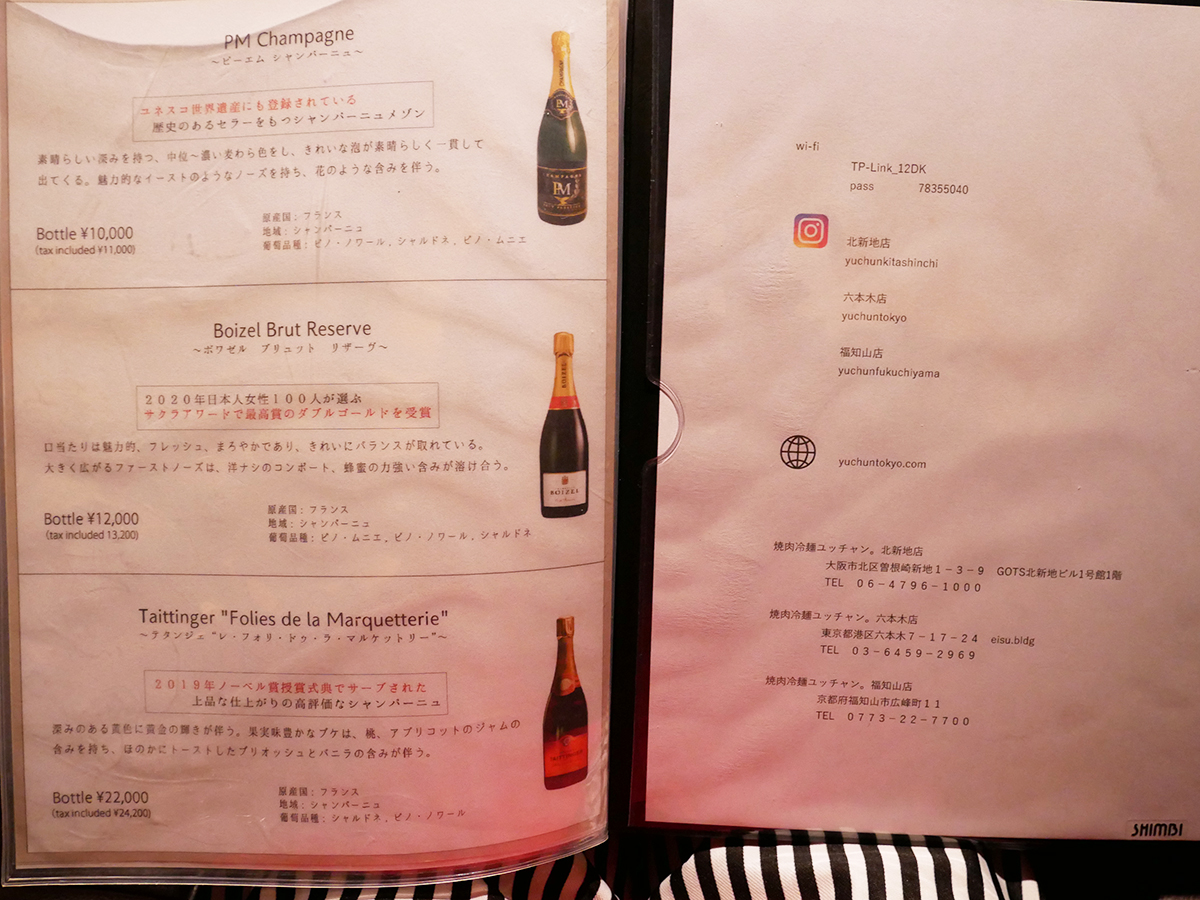 PM Champagne
～ピーエム シャンパーニュ～
ユネスコ世界遺産にも登録されている
歴史のあるセラーをもつシャンパーニュメゾン
素晴らしい深みを持つ、中位～濃い麦わら色をし、きれいな泡が素晴らしく一貫して
出てくる。魅力的なイーストのようなノーズを持ち、花のような含みを伴う。
Bottle ¥10,000
(tax included ¥11,000)
原産国：フランス
地域：シャンパーニュ
葡萄品種：ピノ・ノワール, シャルドネ, ピノ・ムニエ
PM
Boizel Brut Reserve
～ボワゼル ブリュット リザーヴ～
2020年日本人女性100人が選ぶ
サクラアワードで最高賞のダブルゴールドを受賞
口当たりは魅力的、フレッシュ、まろやかであり、きれいにバランスが取れている。
大きく広がるファーストノーズは、洋ナシのコンポート、蜂蜜の力強い含みが溶け合う。
Bottle ¥12,000
(tax included 13,200)
原産国：フランス
地域：シャンパーニュ
葡萄品種：ピノ・ムニエ, ピノ・ノワール, シャルドネ
BOIZEL
Taittinger "Folies de la Marquetterie"
～テタンジェ "レ・フォリ・ドゥ・ラ・マルケットリー"～
2019年ノーベル賞授賞式典でサーブされた
上品な仕上がりの高評価なシャンパーニュ
深みのある黄色に黄金の輝きが伴う。果実味豊かなブケは、桃、アプリコットのジャムの
含みを持ち、ほのかにトーストしたブリオッシュとバニラの含みが伴う。
Bottle ¥22,000
(tax included ¥24,200)
原産国：フランス
地域：シャンパーニュ
葡萄品種：シャルドネ, ピノ・ノワール
wi-fi
TP-Link_12DK
pass 78355040
北新地店
yuchunkitashinchi
六本木店
yuchuntokyo
福知山店
yuchunfukuchiyama
yuchuntokyo.com
焼肉冷麺ユッチャン。北新地店
大阪市北区曽根崎新地1－3－9 GOTS北新地ビル1号館1階
TEL 06－4796－1000
焼肉冷麺ユッチャン。六本木店
東京都港区六本木7－17－24 eisu.bldg
TEL 03－6459－2969
焼肉冷麺ユッチャン。福知山店
京都府福知山市広峰町11
TEL 0773－22－7700
SHIMBI